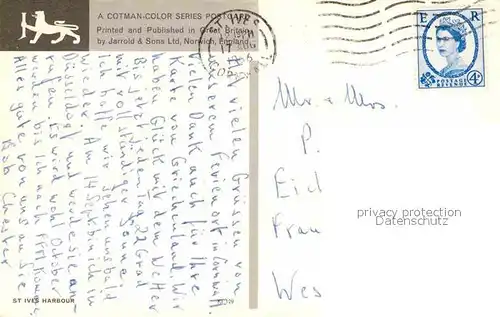 A COTMAN-COLOR SERIES POSTCARD
Printed and Published in Great Britain
by Jarrold & Sons Ltd, Norwich, England
ST IVES
E R
POSTAGE
REVENUE
4D
Mit vielen Grüssen von
unserem Ferienort in Cornwall.
Vielen Dank auch für Ihre
Karte von Griechenland. Wir
haben Glück mit dem Wetter
Bis jetzt jeden Tag 22 Grad
mit vollständiger Sonne.
Ich hoffe wir sehen uns bald
wieder. Am 14 Sept bin ich in
Düsseldorf und werde sie an-
rufen. Es wird wohl October
werden bis ich nach komme.
Alles gute von uns an Sie
Bob Chester
Mr. & Mrs.
P.
Eid
Frau
Wes
privacy protection
Datenschutz
ST IVES HARBOUR